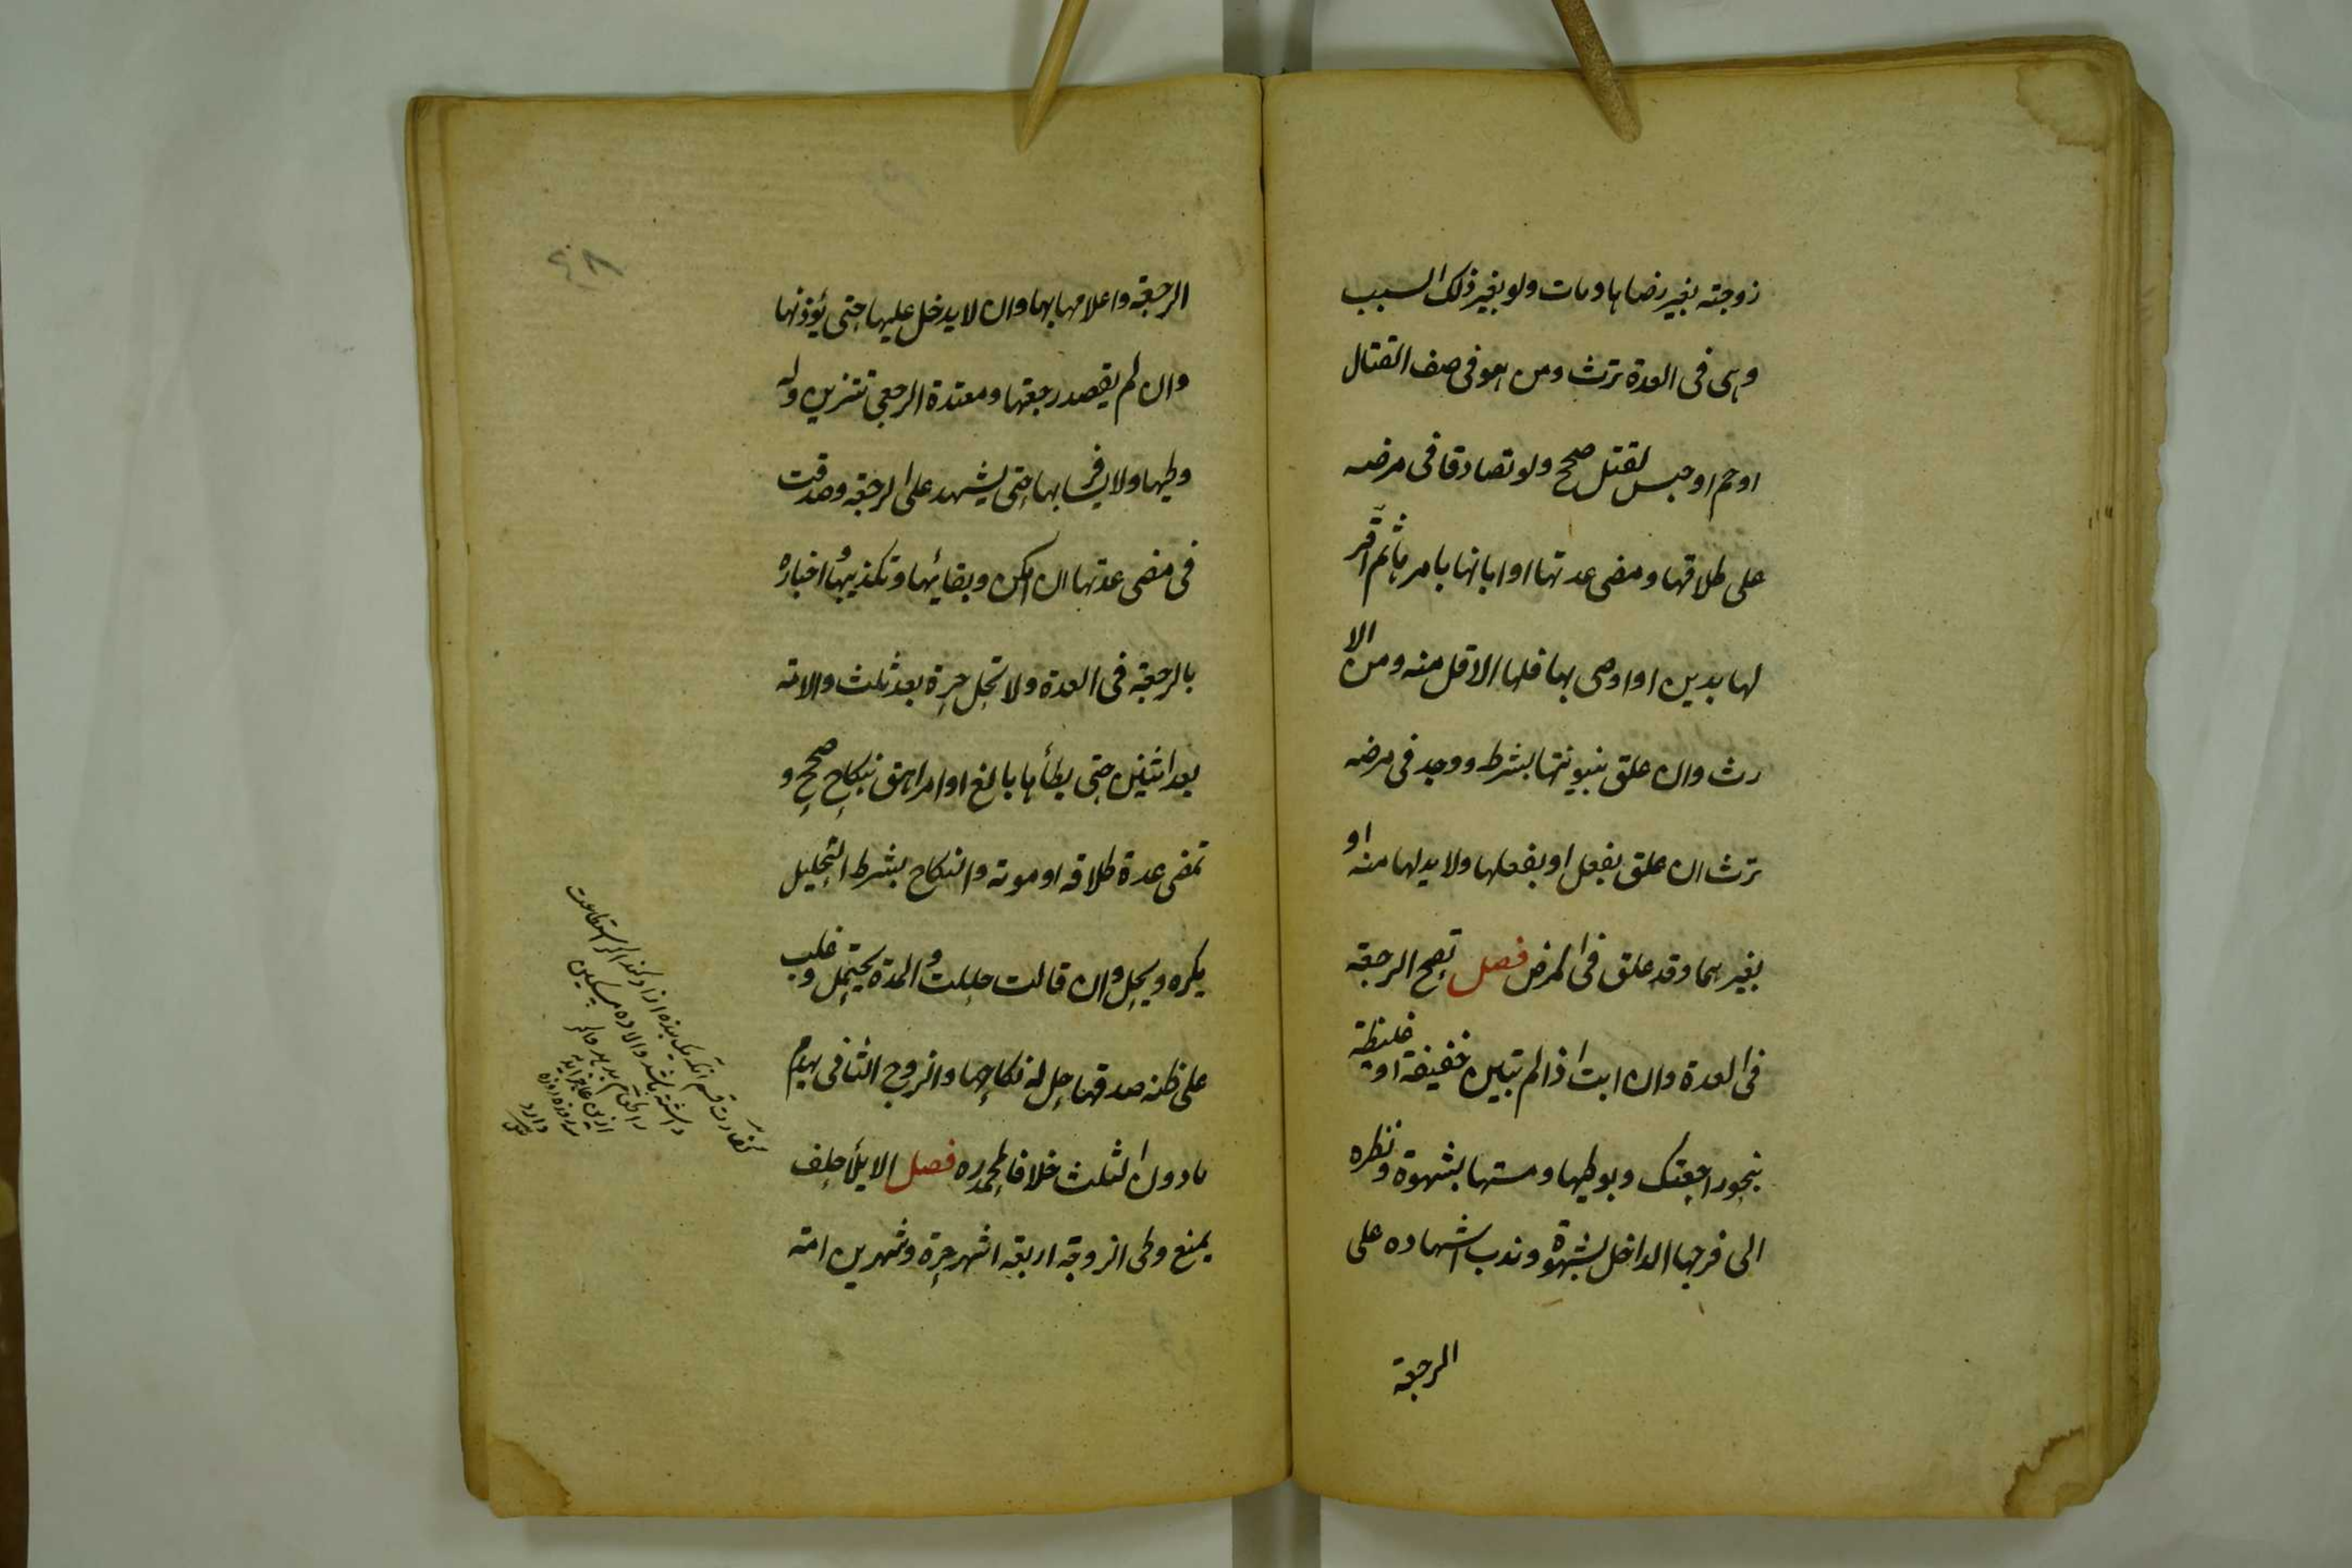 زوجته بغير رضاها ومات ولو بغير ذلك السبب
وهى فى العدة ترث ومن هو فى صف القتال
او حم او حبس لقتل صحح ولو تصادقا فى مرضه
على طلاقها ومضى عدتها او ابانها بامرها ثم اقر
لها بدين او اوصى بها فلها الاقل منه ومن الا
رث وان علق بينونتها بشرط ووجد فى مرضه
ترث ان علق بفعل او بفعلها ولا بد لها منه او
بغيرهما وقد علق فى المرض فصل تصح الرجعة
فى العدة وان ابت اذا لم تبين خفيفة او غليظة
بنحو راجعتك وبوطيها ومستها بشهوة ونظره
الى فرجها الداخل بشهوة وندب اشهاده على
الرجعة
٤٨
الرجعة واعلامها بها وان لا يدخل عليها حتى يؤذنها
وان لم يقصد رجعتها ومعتدة الرجعى تتزين وله
وطيها ولا يسافر بها حتى يشهد على الرجعة وصدقت
فى مضى عدتها ان امكن وبقائها وتكذيبها اخباره
بالرجعة فى العدة ولا تحل حرة بعد ثلث والامة
بعد اثنين حتى يطأها بالغ او مراهق بنكاح صحح و
تمضى عدة طلاقه او موته والنكاح بشرط التحليل
يكره ويحل وان قالت حللت والمدة يحتمل وغلب
على ظنه صدقها حل له نكاحها والزوج الثانى يهدم
مادون الثلث خلافا لمحمد ره فصل الايلأ حلف
يمنع وطى الزوجة اربعة اشهر حرة وشهرين امة